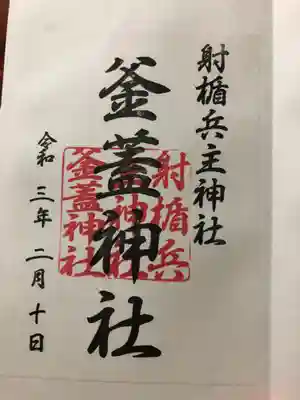 射楯兵主神社
釜蓋神社
射楯兵
主神社
釜蓋神社
令和三年二月十日